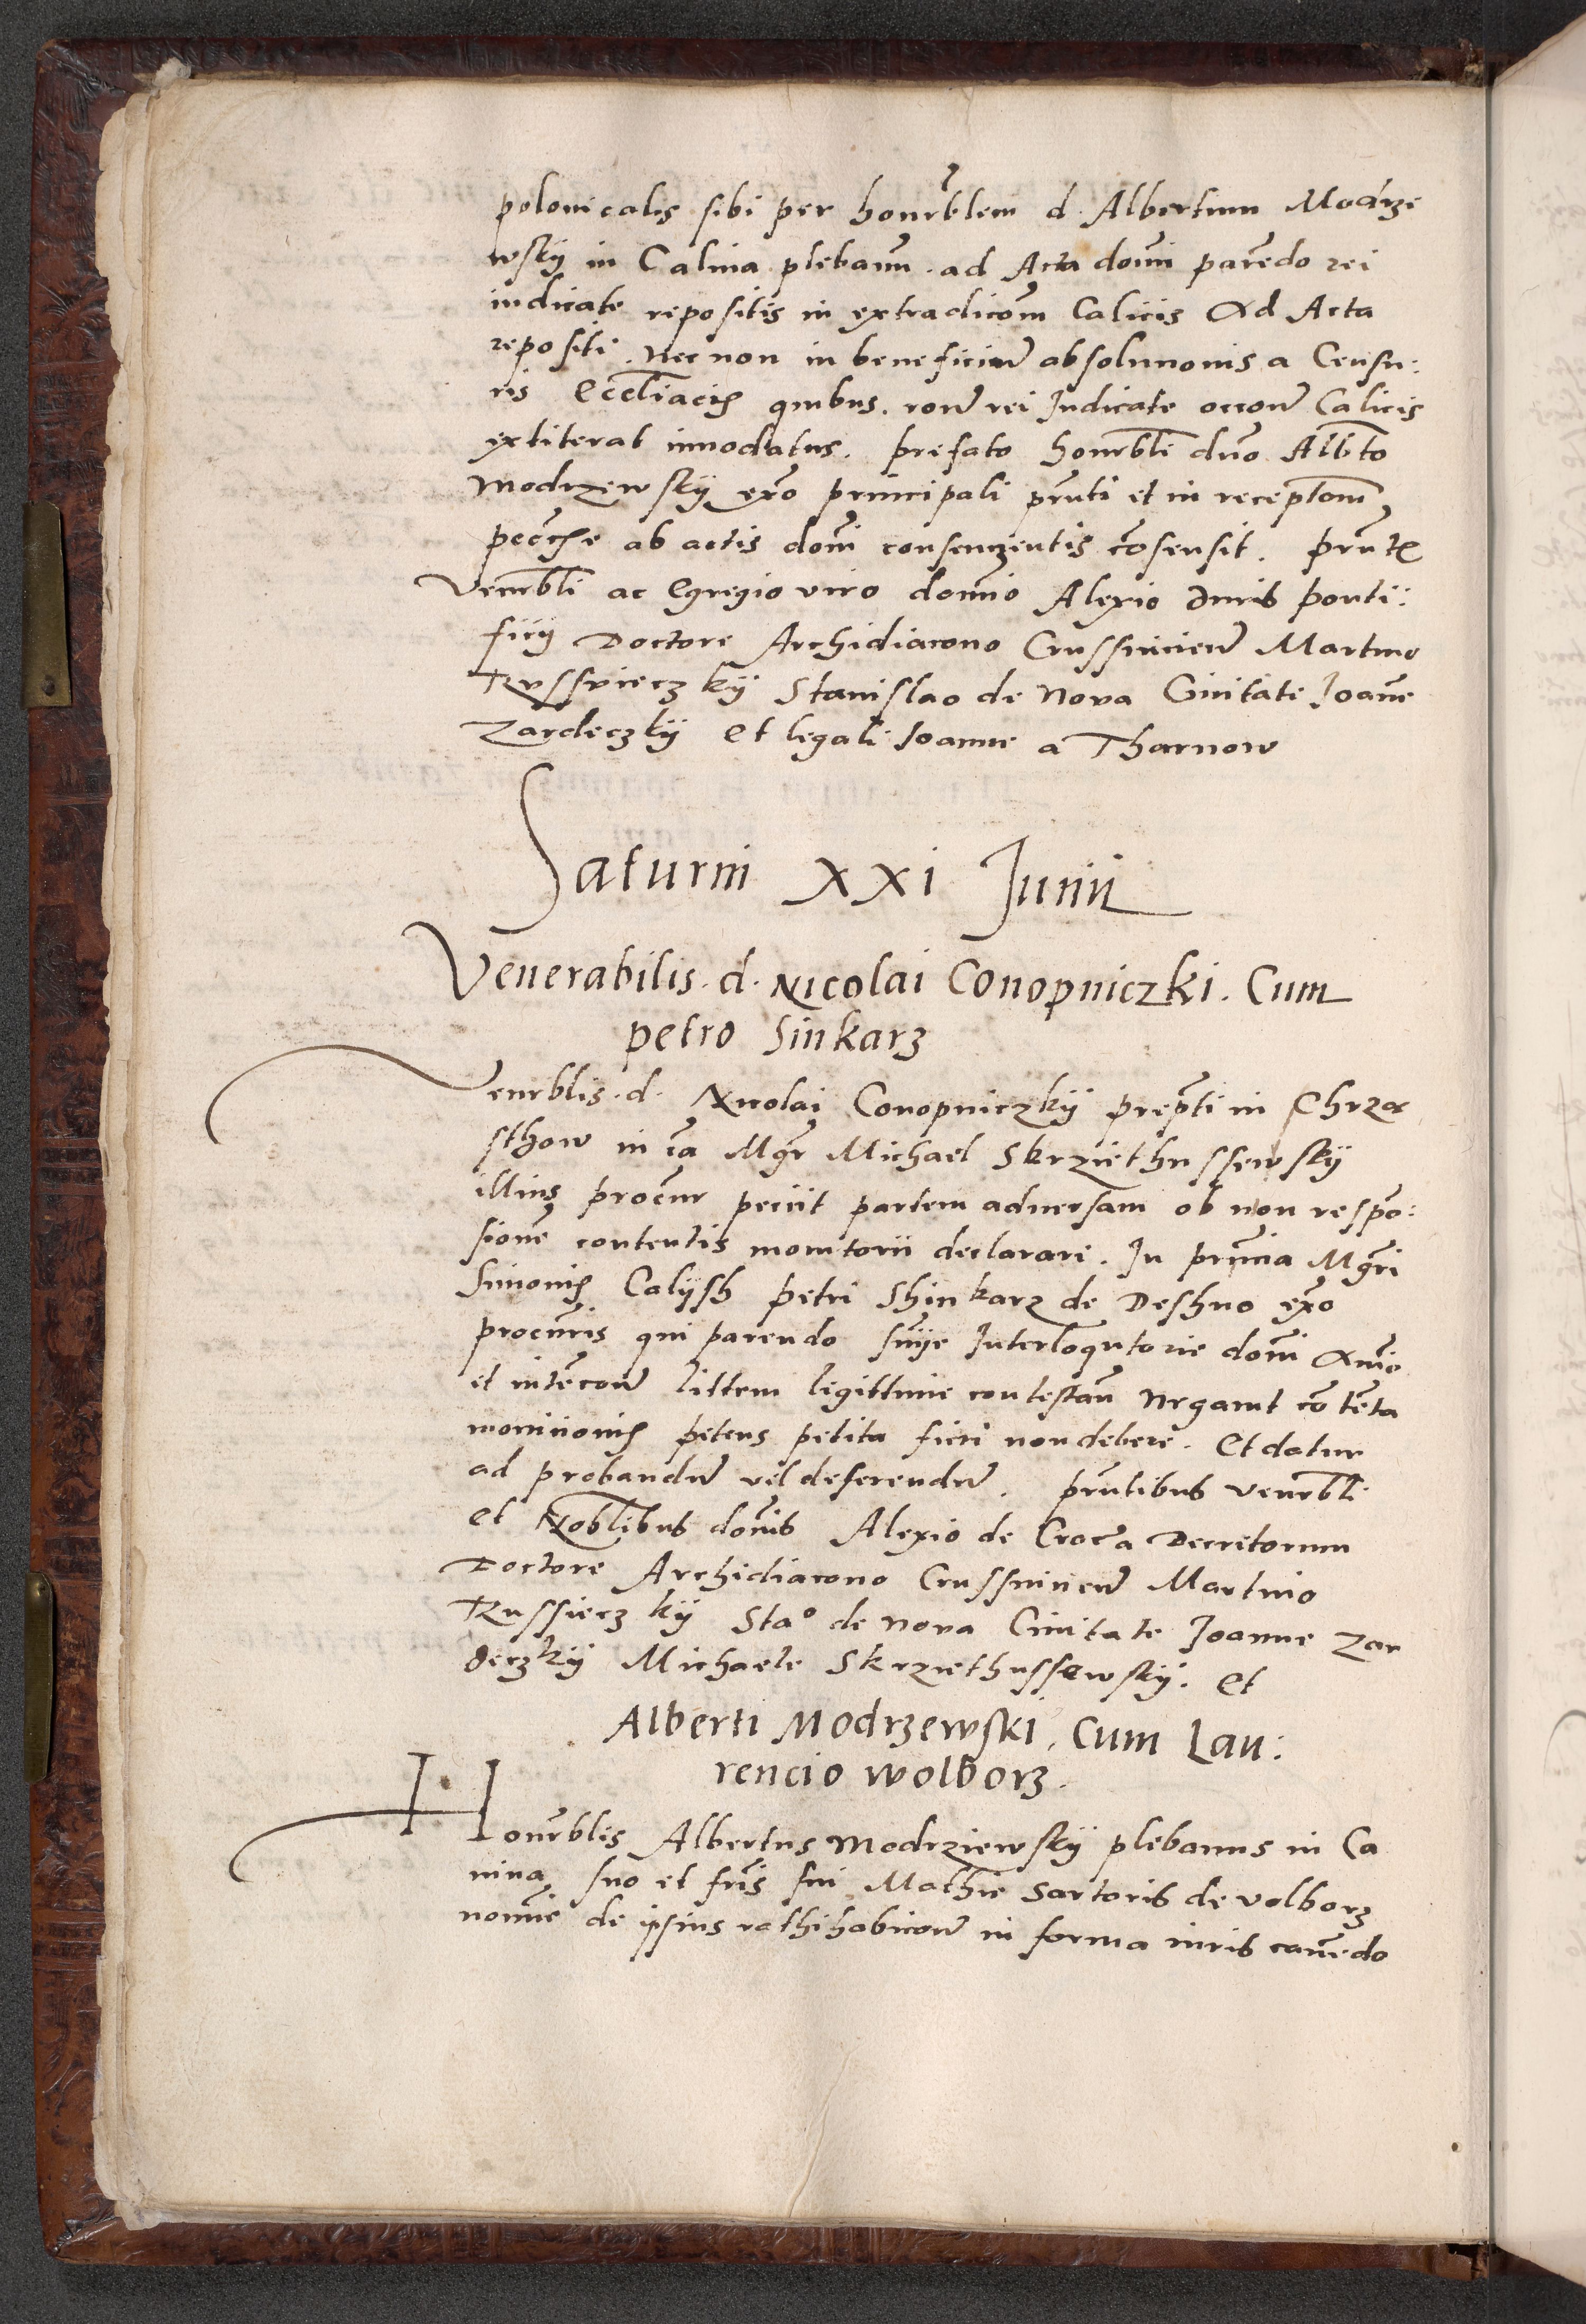 polonicalis sibi per honrblem d. Albertum Modrze
wskÿ in Calina plebanum. ad Acta domi parendo rei
iudicate repositis in extradicom Calicis Ad Acta
repositi. Nec non in beneficium absolucionis a Censu:
ris Eccliacis quibus. rone rei Iudicate occone Calicis
extiterat innodatus. prefato honrbli dno Albto
Modrzewskÿ exo principali prnti et in receptiom
pecche ab actis domi consencientis consensit. prntibus
Venrbli ac Egregio viro domino Alexio Iuris ponti:
ficÿ Doctore Archidiacono Crussvicien Martino
Russieczkÿ Stanislao de Nova Civitate Ioanne
Zardeczkÿ Et legali Ioanne a Tharnow
Saturni xxi Iunii
Venerabilis. d. Nicolai Conopniczki. Cum
petro Sinkarz
Venrblis. d. Nicolai Conopniczkÿ prepti in Chrza
sthow in ca Mgr Michael Skrziethussewskÿ
illius procur peciit partem adversam ob non respon:
sionem contentis monitorii declarari. In prncia Mgri
Simonis Calÿsh petri Shinkarz de Deshno exo
procuris qui parendo snÿe Interloqutorie domi Animo
et intencone littem legittime contestan Negavit contenta
monicionis petens petita fieri non debere. Et datur
ad probandum vel deferendum. prntibus venrbli
et Noblibus domis Alexio de Crocz a Decretorum
Doctore Archidiacono Crussvicien Martino
Russieczkÿ Stao de Nova Civitate Ioanne Zar
deczkÿ Michaele Skrziethussewskÿ. Et
Alberti Modrzewski. Cum Lau:
rencio Wolborz.
Honrblis Albertus Modrziewskÿ plebanus in Ca
nina suo et fris sui Mathie Sartoris de volborz
nomine de ipsius rathihabicone in forma iuris cavendo